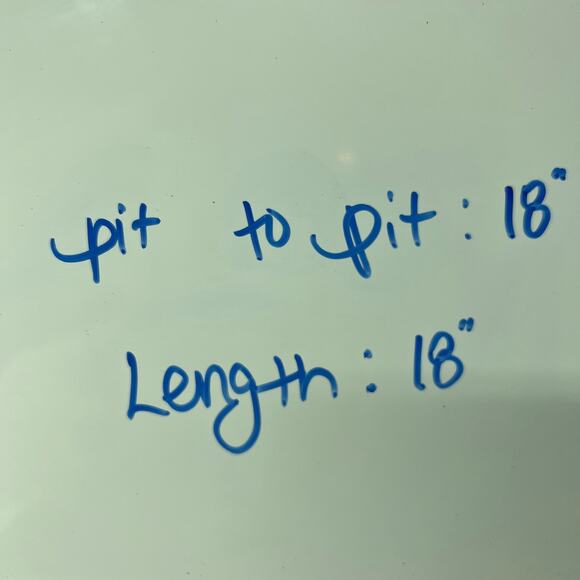 pit to pit: 18"
Length: 18"